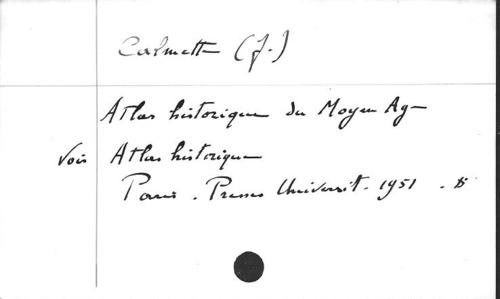 Calmette (J.)
Atlas historique du Moyen Age
Vois Atlas historique
Paris. Presses Universit. 1951.